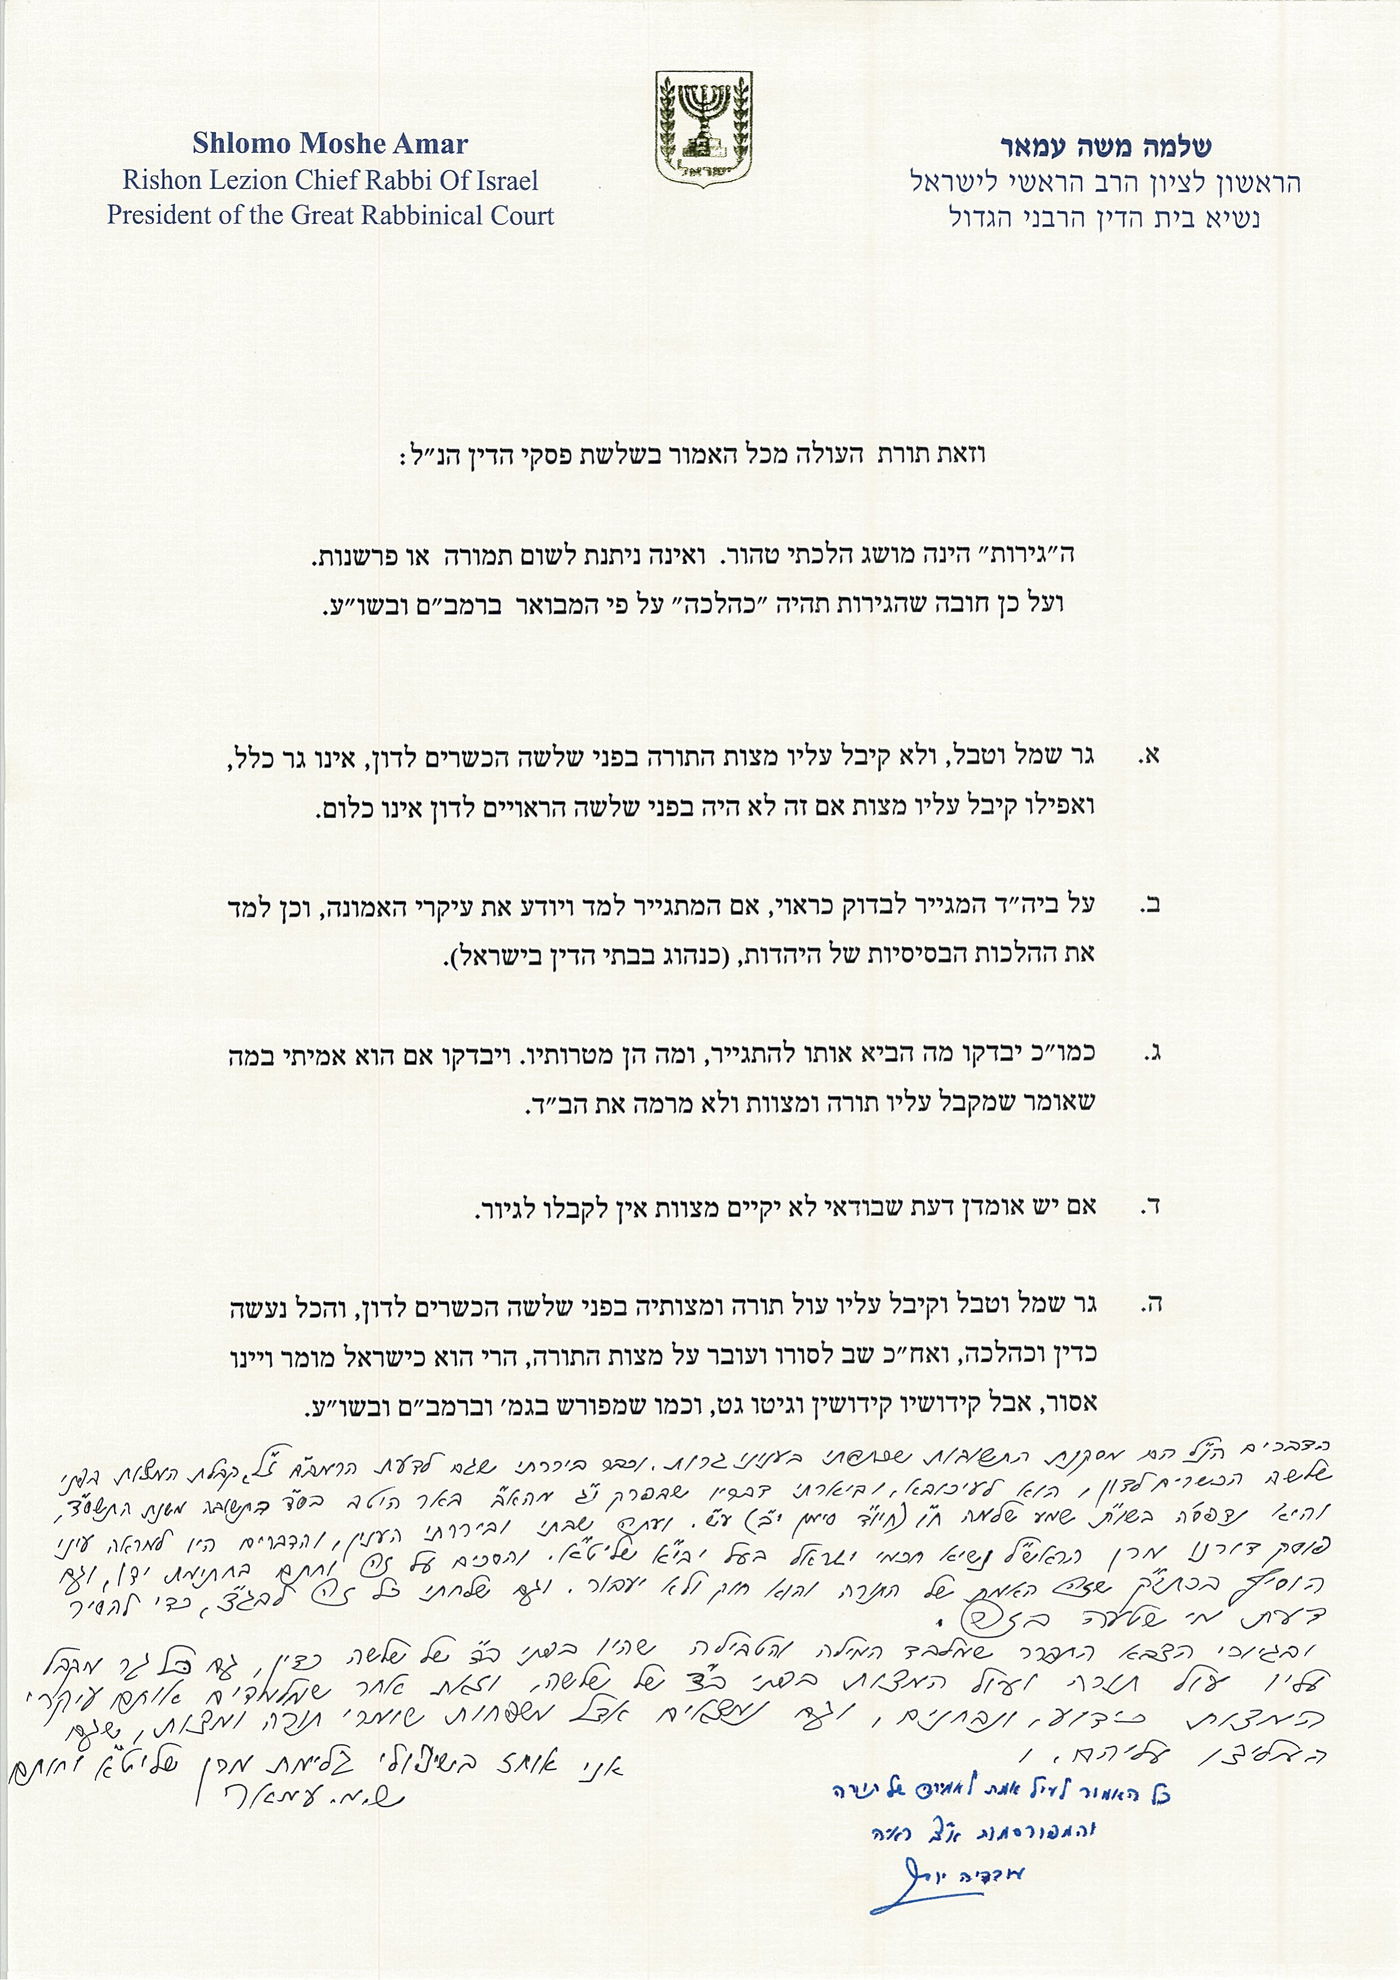 Shlomo Moshe Amar
Rishon Lezion Chief Rabbi Of Israel
President of the Great Rabbinical Court
ישראל
שלמה משה עמאר
הראשון לציון הרב הראשי לישראל
נשיא בית הדין הרבני הגדול
וזאת תורת העולה מכל האמור בשלשת פסקי הדין הנ״ל:
ה״גירות״ הינה מושג הלכתי טהור. ואינה ניתנת לשום תמורה או פרשנות.
ועל כן חובה שהגירות תהיה ״כהלכה״ על פי המבואר ברמב״ם ובשו״ע.
א. גר שמל וטבל, ולא קיבל עליו מצות התורה בפני שלשה הכשרים לדון, אינו גר כלל,
ואפילו קיבל עליו מצות אם זה לא היה בפני שלשה הראויים לדון אינו כלום.
ב. על ביה״ד המגייר לבדוק כראוי, אם המתגייר למד ויודע את עיקרי האמונה, וכן למד
את ההלכות הבסיסיות של היהדות, (כנהוג בבתי הדין בישראל).
ג. כמו״כ יבדקו מה הביא אותו להתגייר, ומה הן מטרותיו. ויבדקו אם הוא אמיתי במה
שאומר שמקבל עליו תורה ומצוות ולא מרמה את הב״ד.
ד. אם יש אומדן דעת שבודאי לא יקיים מצוות אין לקבלו לגיור.
ה. גר שמל וטבל וקיבל עליו עול תורה ומצותיה בפני שלשה הכשרים לדון, והכל נעשה
כדין וכהלכה, ואח״כ שב לסורו ועובר על מצות התורה, הרי הוא כישראל מומר ויינו
אסור, אבל קידושיו קידושין וגיטו גט, וכמו שמפורש בגמ׳ וברמב״ם ובשו״ע.
הדברים הנ״ל הם מסקנת התשובות שכתבתי בעניני גרות. וכבר ביררתי שגם לדעת הרמב״ם ז״ל, קבלת המצות בפני
שלשה הכשרים לדון, הוא לעיכובא, וביארתי דבריו שבפרק י״ג מהא״ב באר היטב בס״ד בתשובה משנת התשס״ד,
והיא נדפסה בשו״ת שמע שלמה ח״ו (חיו״ד סימן י״ב) ע״ש. ועתה שבתי וביררתי הענין, והדברים היו למראה עיני
פוסק דורנו מרן הראש״ל נשיא חכמי ישראל בעל יבי״א שליט״א. והסכים על זה וחתם בחתימת ידו, וגם
הוסיף בכתי״ק שזה האמת של התורה והוא חוק ולא יעבור. וגם שלחתי כל זה לבג״צ, כדי להסיר
דעת מי שטעה בזה.
ובגיורי הצבא התברר שמלבד המילה והטבילה שהיו בפני ב״ד של שלשה כדין, גם כל גר מקבל
עליו עול תורה ועול המצות בפני ב״ד של שלשה, וזאת אחר שמלמדים אותם עיקרי
המצות כידוע, ונבחנים, וגם נמצאים אצל משפחות שומרי תורה ומצות, שגם
המליצו עליהם. ו
אני אוחז בשיפולי גלימת מרן שליט״א וחותם
ש.מ. עמאר
כל האמור לעיל אמת לאמיתה של תורה
והמפורסמות א״צ ראיה
עובדיה יוסף